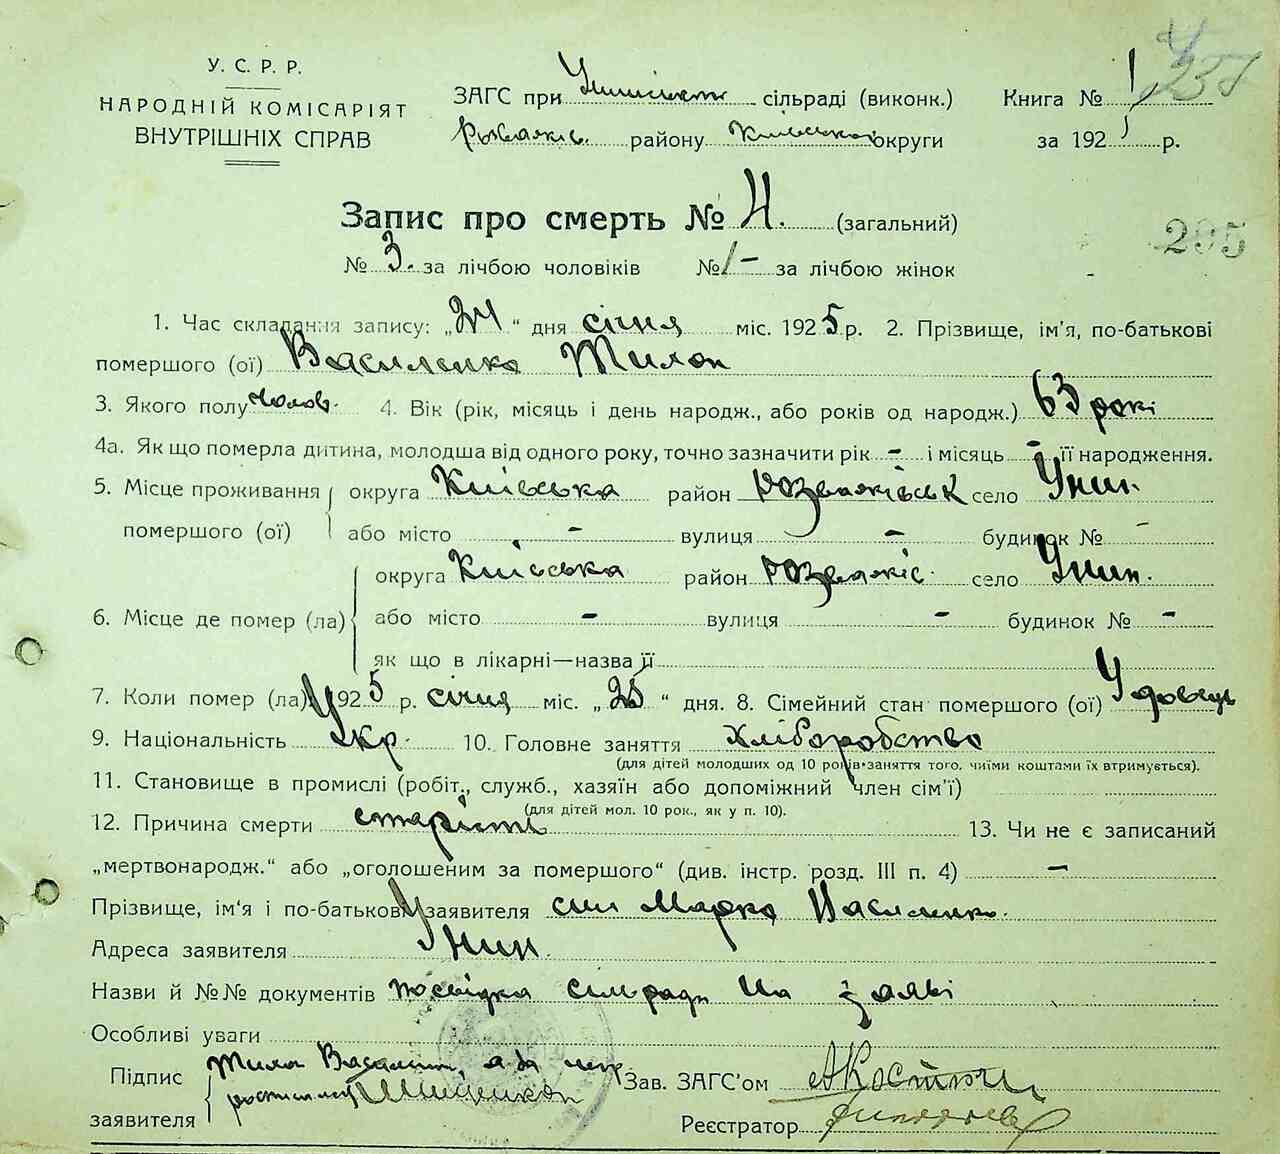 У. С. Р. Р.
НАРОДНІЙ КОМІСАРІЯТ
ВНУТРІШНІХ СПРАВ
ЗАГС при сільраді (виконк.)
Розважів. району Київської округи
Книга № 1
за 1925 р.
237
Запис про смерть № 4. (загальний)
№ 3. за лічбою чоловіків № 1 - за лічбою жінок
205
1. Час складання запису: „24“ дня січня міс. 1925 р. 2. Прізвище, ім'я, по-батькові
помершого (ої) Василенко Тилон
3. Якого полу чолов. 4. Вік (рік, місяць і день народж., або років од народж.) 63 рокі
4а. Як що померла дитина, молодша від одного року, точно зазначити рік - і місяць - її народження.
5. Місце проживання округа Київська район Розважівськ село Унин.
помершого (ої) або місто - вулиця - будинок № -
округа Київська район Розважіс. село Унин.
6. Місце де помер (ла) або місто - вулиця - будинок № -
як що в лікарні—назва її
7. Коли помер (ла) 1925 р. січня міс. „25“ дня. 8. Сімейний стан помершого (ої) Удовець
9. Національність Укр. 10. Головне заняття хліборобство
(для дітей молодших од 10 років-заняття того, чиїми коштами їх втримується).
11. Становище в промислі (робіт., служб., хазяїн або допоміжний член сім'ї)
(для дітей мол. 10 рок., як у п. 10).
12. Причина смерти старість 13. Чи не є записаний
„мертвонародж.“ або „оголошеним за помершого“ (див. інстр. розд. III п. 4) -
Прізвище, ім'я і по-батькові заявителя син Марко Василенко.
Адреса заявителя Унин.
Назви й №№ документів посвідка сільради на заяві
Особливі уваги
Підпис
заявителя
Зав. ЗАГС'ом
Реєстратор